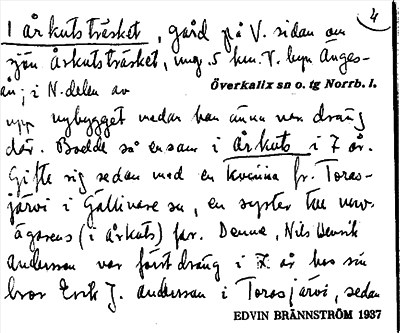 4
1 årkutsträsket, gård på V. sidan om
sjön årskutsträsket, ung. 5 km. V. byn Änges-
ån; i N. delen av
Överkalix sn o. tg Norrb. l.
upp nybygget medan han ännu var dräng
där. Bodde så ensam i årkuts i 7 år.
Gifte sig sedan med en kvinna fr. Toras-
järvi i Gällivare sn, en syster till nuv.
ägarens (i årkuts) far. Denna, Nils Henrik
Andersson var först dräng i 7 år hos sin
bror Erik J. Andersson i Torasjärvi, sedan
EDVIN BRÄNNSTRÖM 1937